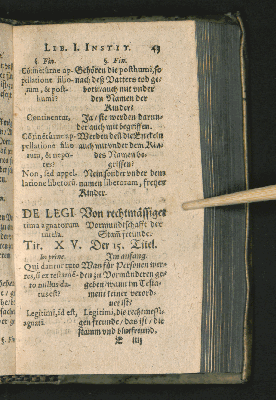 LIB. I. INSTIT. 43
§ Fin. § Fin.
Cōtinentúrne ap- Gehören die posthumi, so
pellatione filio- nach deß Vatters tod ge-
rum, & post- born/auch mit vnder
humi? den Namen der
Kinder?
Continentur. Ja/ sie werden darun-
der auch mit begriffen.
Cōtinētúrne ap- Werden deñ die Enckeln
pellatione filio- auch mit vnder dem Kin-
rum, & nepo- des Namen be-
tes? griffen?
Non, sed appel- Nein/sonder vnder dem
latione liberorū. namen liberorum, freyer
Kinder.
DE LEGI- Von rechtmässiger
tima agnatorum Vormundschafft der
tutela. Stam̄freunde.
TIT. XV. Der 15. Titel.
In princ. Im anfang.
Qui dantur tuto- Was für Personen wer-
res, si ex testamē- den zu Vormündern ge-
to nullus da- geben/wann im Testa-
tus est? ment keiner verord-
net ist?
Legitimi, id est, Legitimi, die rechtmessi-
agnati. gen freunde/das ist/die
stamm vnd blutfreund.
iiij